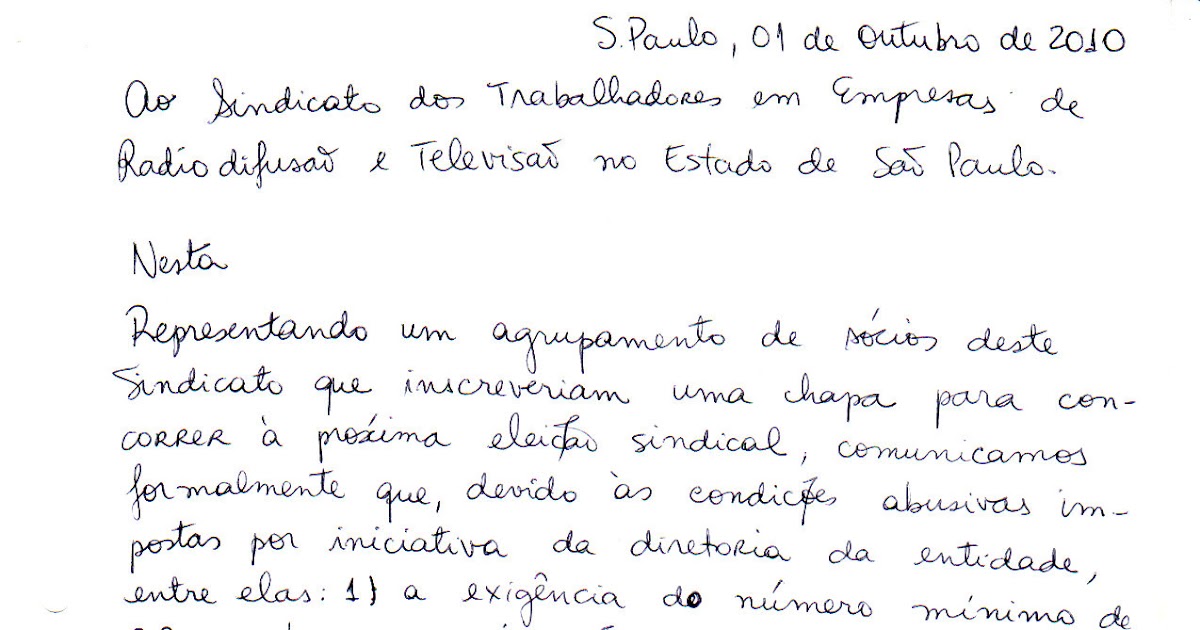 S.Paulo, 01 de Outubro de 2010
Ao Sindicato dos Trabalhadores em Empresas de
Radiodifusão e Televisão no Estado de São Paulo.
Nesta
Representando um agrupamento de sócios deste
Sindicato que inscreveriam uma chapa para con-
correr à próxima eleição sindical, comunicamos
formalmente que, devido às condições abusivas im-
postas por iniciativa da diretoria da entidade,
entre elas: 1) a exigência do número mínimo de